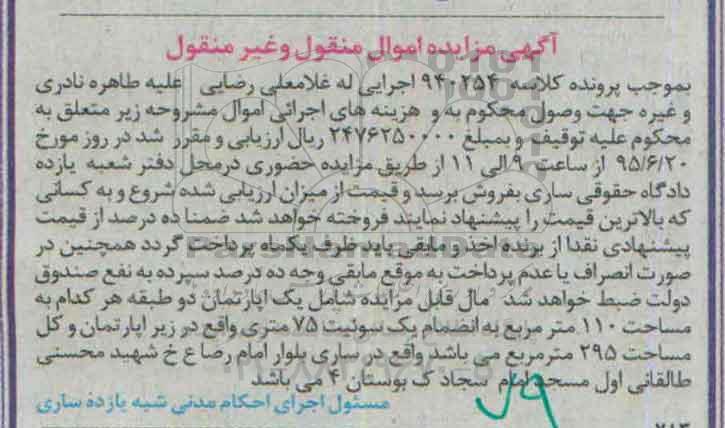 آگهی مزایده اموال منقول وغیر منقول
بموجب پرونده کلاسه ۹۴۰۲۵۴ اجرایی له غلامعلی رضایی علیه طاهره نادری
و غیره جهت وصول محکوم به و هزینه های اجرائی اموال مشروحه زیر متعلق به
محکوم علیه توقیف و بمبلغ ۲۴۷۶۲۵۰۰۰۰ ریال ارزیابی و مقرر شد در روز مورخ
۹۵/۶/۲۰ از ساعت ۹ الی ۱۱ از طریق مزایده حضوری درمحل دفتر شعبه یازده
دادگاه حقوقی ساری بفروش برسد و قیمت از میزان ارزیابی شده شروع و به کسانی
که بالاترین قیمت را پیشنهاد نمایند فروخته خواهد شد ضمنا ده درصد از قیمت
پیشنهادی نقدا از برنده اخذ و مابقی باید ظرف یکماه پرداخت گردد همچنین در
صورت انصراف یا عدم پرداخت به موقع مابقی وجه ده درصد سپرده به نفع صندوق
دولت ضبط خواهد شد مال قابل مزایده شامل یک اپارتمان دو طبقه هر کدام به
مساحت ۱۱۰ متر مربع به انضمام یک سوئیت ۷۵ متری واقع در زیر اپارتمان و کل
مساحت ۲۹۵ مترمربع می باشد واقع در ساری بلوار امام رضا ع خ شهید محسنی
طالقانی اول مسجد امام سجاد ک بوستان ۴ می باشد
مسئول اجرای احکام مدنی شبه یازده ساری